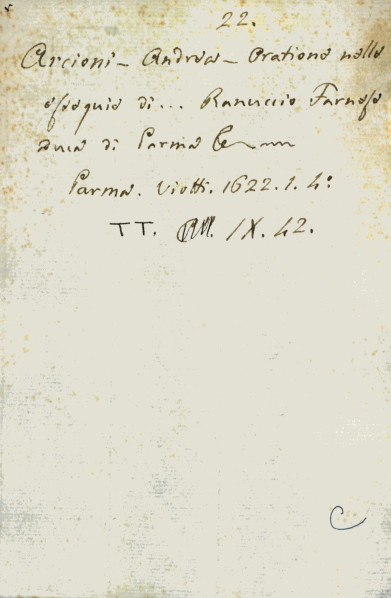 22.
Arcioni - Andrea - Oratione nelle
essequie di... Ranuccio Farnese
duca di Parma &
Parma. Viotti. 1622. 1. 4º
TT. IX. 42.
C